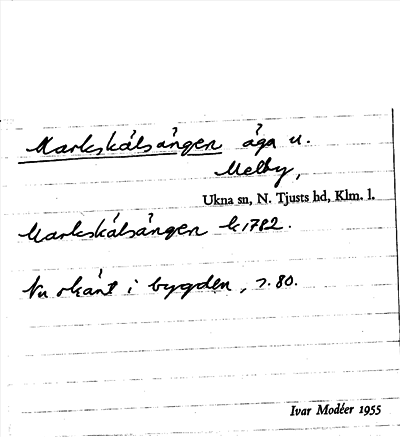 Markskálsängen äga u.
Melby,
Ukna sn, N. Tjusts hd, Klm. l.
Markskálsängen k 1782.
Nu okänt i bygden, 7.80.
Ivar Modéer 1955